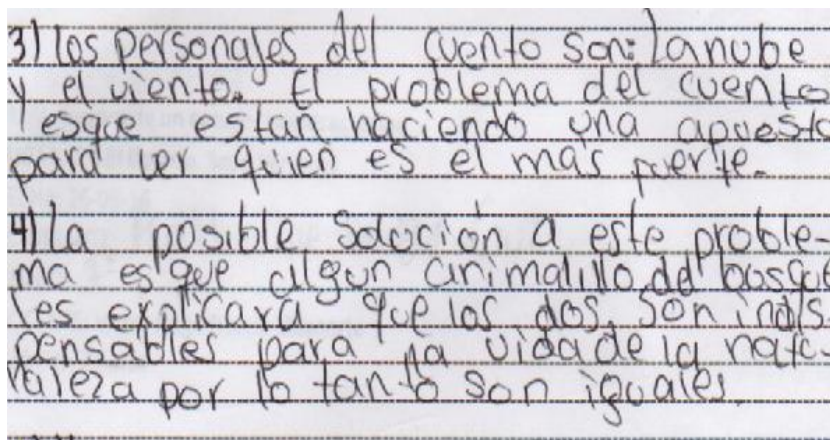 3) los personajes del cuento son: la nube
y el viento. El problema del cuento
es que estan haciendo una apuesta
para ver quien es el mas fuerte.
4) la posible solución a este proble-
ma es que algun animalillo del bosque
les explicara que los dos son indis-
pensables para la vida de la natu-
raleza por lo tanto son iguales.